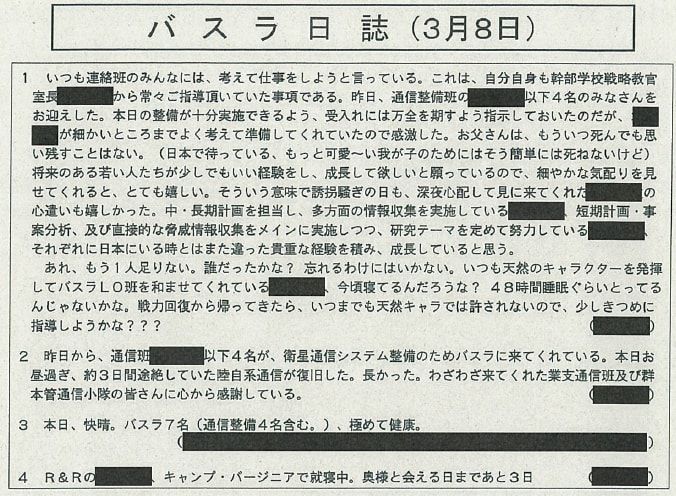 バスラ日誌（３月８日）
１　いつも連絡班のみんなには、考えて仕事をしようと言っている。これは、自分自身も幹部学校戦略教官
室長　　　から常々ご指導頂いていた事項である。昨日、通信整備班の　　　以下４名のみなさんを
お迎えした。本日の整備が十分実施できるよう、受入れには万全を期すよう指示しておいたのだが、
　　が細かいところまでよく考えて準備してくれていたので感激した。お父さんは、もういつ死んでも思
い残すことはない。（日本で待っている、もっと可愛〜い我が子のためにはそう簡単には死ねないけど）
将来のある若い人たちが少しでもいい経験をし、成長して欲しいと願っているので、細やかな気配りを見
せてくれると、とても嬉しい。そういう意味で誘拐騒ぎの日も、深夜心配して見に来てくれた　　　の
心遣いも嬉しかった。中・長期計画を担当し、多方面の情報収集を実施している　　　、短期計画・事
案分析、及び直接的な脅威情報収集をメインに実施しつつ、研究テーマを定めて努力している　　　、
それぞれに日本にいる時とはまた違った貴重な経験を積み、成長していると思う。
　あれ、もう１人足りない。誰だったかな？　忘れるわけにはいかない。いつも天然のキャラクターを発揮
してバスラＬＯ班を和ませてくれている　　　、今頃寝てるんだろうな？　４８時間睡眠ぐらいとってる
んじゃないかな。戦力回復から帰ってきたら、いつまでも天然キャラでは許されないので、少しきつめに
指導しようかな？？？　（　　　）
２　昨日から、通信班　　　以下４名が、衛星通信システム整備のためバスラに来てくれている。本日お
昼過ぎ、約３日間途絶していた陸自系通信が復旧した。長かった。わざわざ来てくれた業支通信班及び群
本管通信小隊の皆さんに心から感謝している。　（　　　）
３　本日、快晴。バスラ７名（通信整備４名含む。）、極めて健康。
（　　　）
４　Ｒ＆Ｒの　　　、キャンプ・バージニアで就寝中。奥様と会える日まであと３日　（　　　）